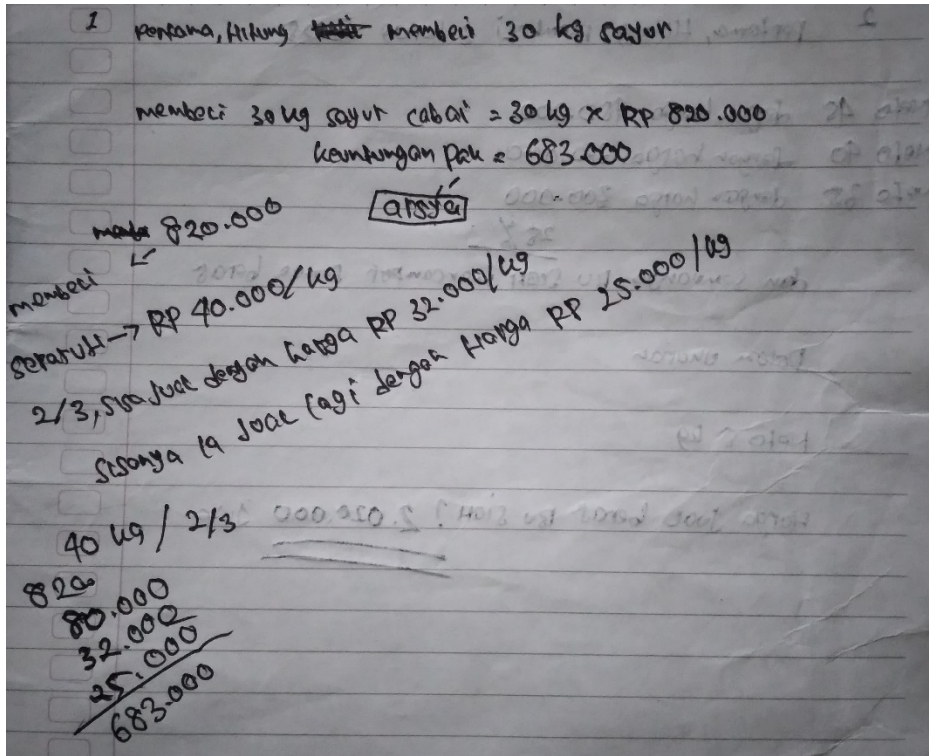 1 Pertama, Hitung membeli 30 kg sayur
membeli 30 kg sayur cabai = 30 kg x RP 820.000
keuntungan pak = 683.000
arsya
820.000
membeli
separuh → RP 40.000/kg
2/3, sisa jual dengan harga RP 32.000/kg
sisanya ia jual lagi dengan Harga RP 25.000/kg
40 kg / 2/3
820
80.000
32.000
25.000
683.000